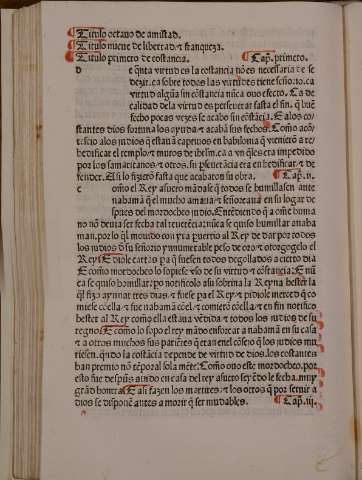 Titulo octauo de amistad.
Titulo nueue de libertad ⁊ franqueza.
Titulo primero de costancia. Cap. primero.
d e q̄nta virtud es la costancia nō es necessaria de se
dezir. ca sobre todas las virtudes tiene señorio. ca
virtud alguna sin costancia nūca ouo efecto. La de
calidad dela virtud es perseuerar fasta el fin. q̄ buē
fecho pocas vezes se acabo sin costācia. E alos co
stantes dios fortuna los ayuda ⁊ acaba sus fechos. Como
tescio alos judios q̄ estauā captiuos en babilonia q̄ vinierō a re
hedificar el templo ⁊ muros de
por los samaritanos ⁊ otros. su pseuerācia era en hedificar ⁊ de
fender. El si lo fizierō fasta que acabaron su obra. Cap. ij.
c omo el Rey asuero mādase q̄ todos se humillasen ante
nabamā q̄l mucho amaua ⁊ señoreaua en su logar de
spues del mordocheo judio. Entēdiendo q̄ a ome huma
no nō deuia ser fecha tal reuerēcia: nūca se quiso humillar anaba
man. por lo q̄l mouido con yra puertio al Rey de dar por todos
los judios d̄ su señorio ynumerable peso de oro ⁊ otorgogelo el
Rey E diole cartas pa q̄ fuesen todos degollados a cierto dia
E como mordocheo lo sopiese vso de su virtud ⁊ cōstancia: E nū
ca se quiso humilar: po notificolo asu sobrina la Reyna hester la
q̄l fizo ayunar tres dias. ⁊ fuese pa el Rey ⁊ pidiole merced q̄ co
miese cōella ⁊ fue nabamā cōel. ⁊ comierō cōella ⁊ en fin notifico
hester al Rey como ella estaua vēdida ⁊ todos los judios de su
regno E como lo sopo el rey mādo enforcar a nabamā en su casa
⁊ a otros muchos sus pariētes q̄ eran enel cōsejo q̄ los judios mu
riesen. qn̄do la costācia depende de virtud de dios. los costantes
han premio nō tēporal sola mēte. Como ouo este mordocheo. por
esto fue despūs siēdo en casa del rey asuero seyēdo le fecha. muy
grād honrra E asi fazen los martires. ⁊ los otros q̄ por seruir a
dios se disponē antes a morir q̄ ser mudables. Cap. iij.